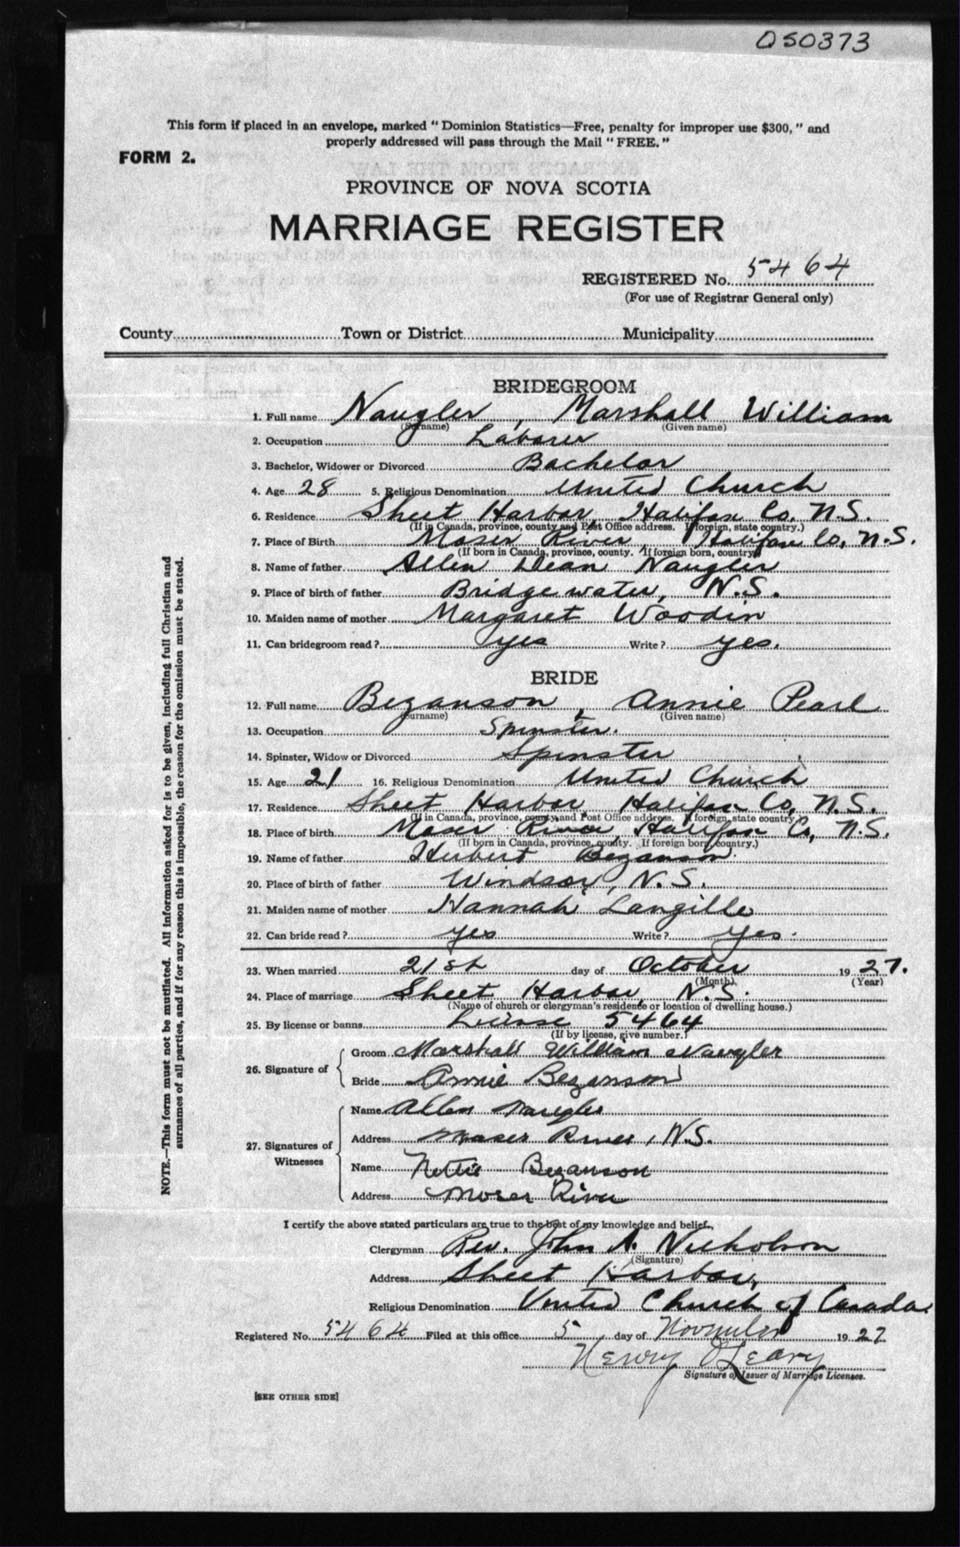 050373
This form if placed in an envelope, marked " Dominion Statistics—Free, penalty for improper use $300, " and
properly addressed will pass through the Mail " FREE. "
FORM 2.
PROVINCE OF NOVA SCOTIA
MARRIAGE REGISTER
REGISTERED No. 5464
(For use of Registrar General only)
County Town or District Municipality
BRIDEGROOM
1. Full name Naugler, Marshall William
(Surname) (Given name)
2. Occupation Laborer
3. Bachelor, Widower or Divorced Bachelor
4. Age 28 5. Religious Denomination United Church
6. Residence Sheet Harbor, Halifax Co, N.S.
(If in Canada, province, county and Post Office address. If foreign, state country.)
7. Place of Birth Moser River, Halifax Co, N.S.
(If born in Canada, province, county. If foreign born, country)
8. Name of father Allen Dean Naugler
9. Place of birth of father Bridgewater, N.S.
10. Maiden name of mother Margaret Woodin
11. Can bridegroom read? yes Write? yes.
BRIDE
12. Full name Bezanson, Annie Pearl
(Surname) (Given name)
13. Occupation Spinster.
14. Spinster, Widow or Divorced Spinster
15. Age 21 16. Religious Denomination United Church
17. Residence Sheet Harbor, Halifax Co, N.S.
(If in Canada, province, county and Post Office address. If foreign, state country.)
18. Place of birth Moser River, Halifax Co, N.S.
(If born in Canada, province, county. If foreign born, country.)
19. Name of father Herbert Bezanson.
20. Place of birth of father Windsor, N.S.
21. Maiden name of mother Hannah Langille
22. Can bride read? yes Write? yes.
23. When married 21st day of October 1927.
(Month) (Year)
24. Place of marriage Sheet Harbor, N.S.
(Name of church or clergyman's residence or location of dwelling house.)
25. By license or banns License 5464
(If by license, give number.)
26. Signature of
Groom Marshall William Naugler
Bride Annie Bezanson
27. Signatures of Witnesses
Name Allen Naugler
Address Moser River, N.S.
Name Nettie Bezanson
Address Moser River
I certify the above stated particulars are true to the best of my knowledge and belief.
Clergyman Rev. John A. Nicholson
(Signature)
Address Sheet Harbor,
Religious Denomination United Church of Canada.
Registered No. 5464 Filed at this office 5 day of November 1927
Henry O'Leary
Signature of Issuer of Marriage Licenses.
[SEE OTHER SIDE]
NOTE.—This form must not be mutilated. All information asked for is to be given, including full Christian and
surnames of all parties, and if for any reason this is impossible, the reason for the omission must be stated.